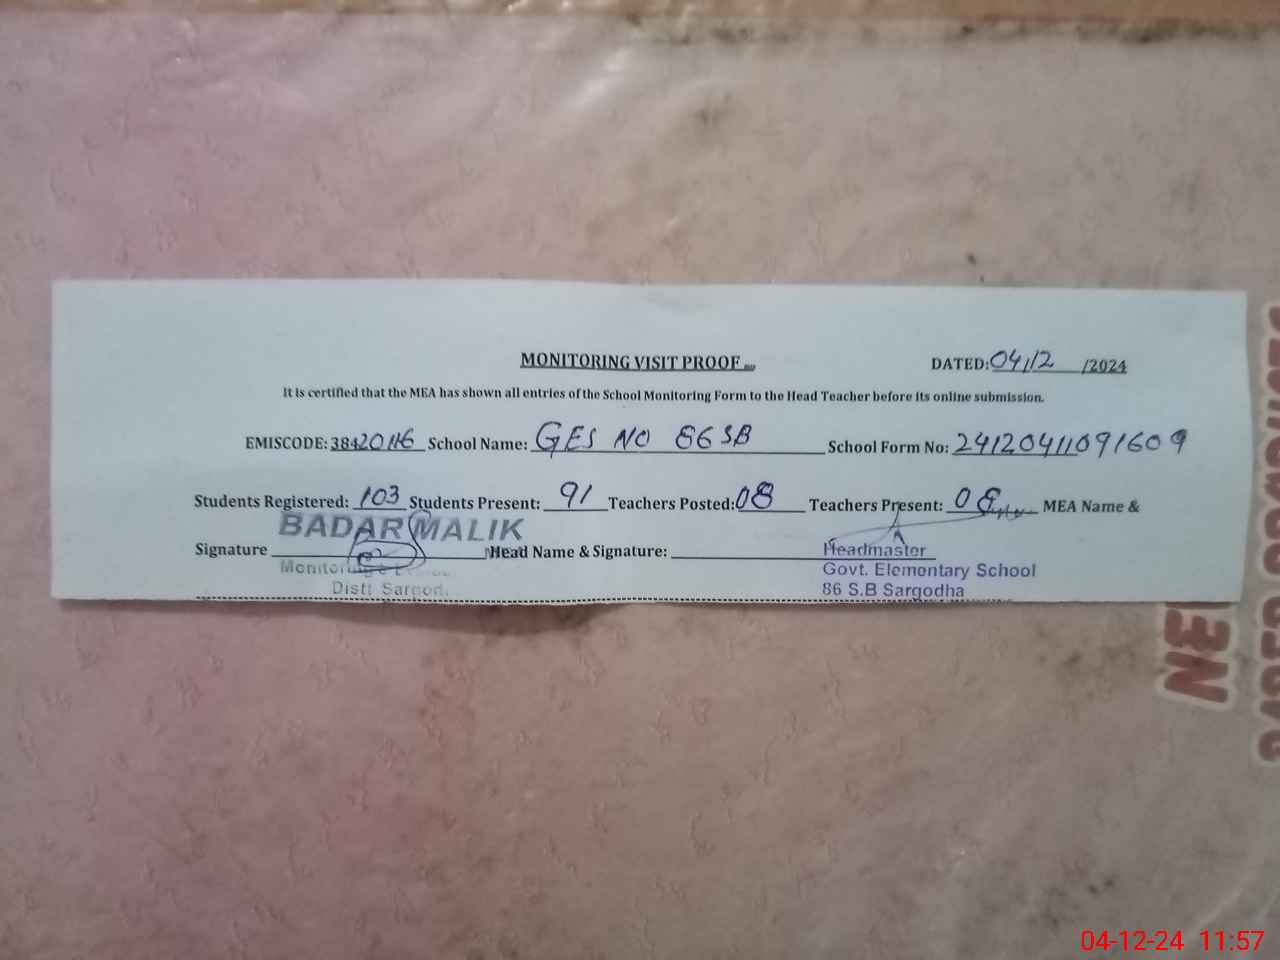 MONITORING VISIT PROOF
DATED: 04/12 /2024
It is certified that the MEA has shown all entries of the School Monitoring Form to the Head Teacher before its online submission.
EMISCODE: 38420116 School Name: GES NO 86 SB School Form No: 24120411091609
Students Registered: 103 Students Present: 91 Teachers Posted: 08 Teachers Present: 08 MEA Name &
BADAR MALIK
Signature Head Name & Signature:
Headmaster
Govt. Elementary School
Distt Sargod.
86 S.B Sargodha
NE
04-12-24 11:57